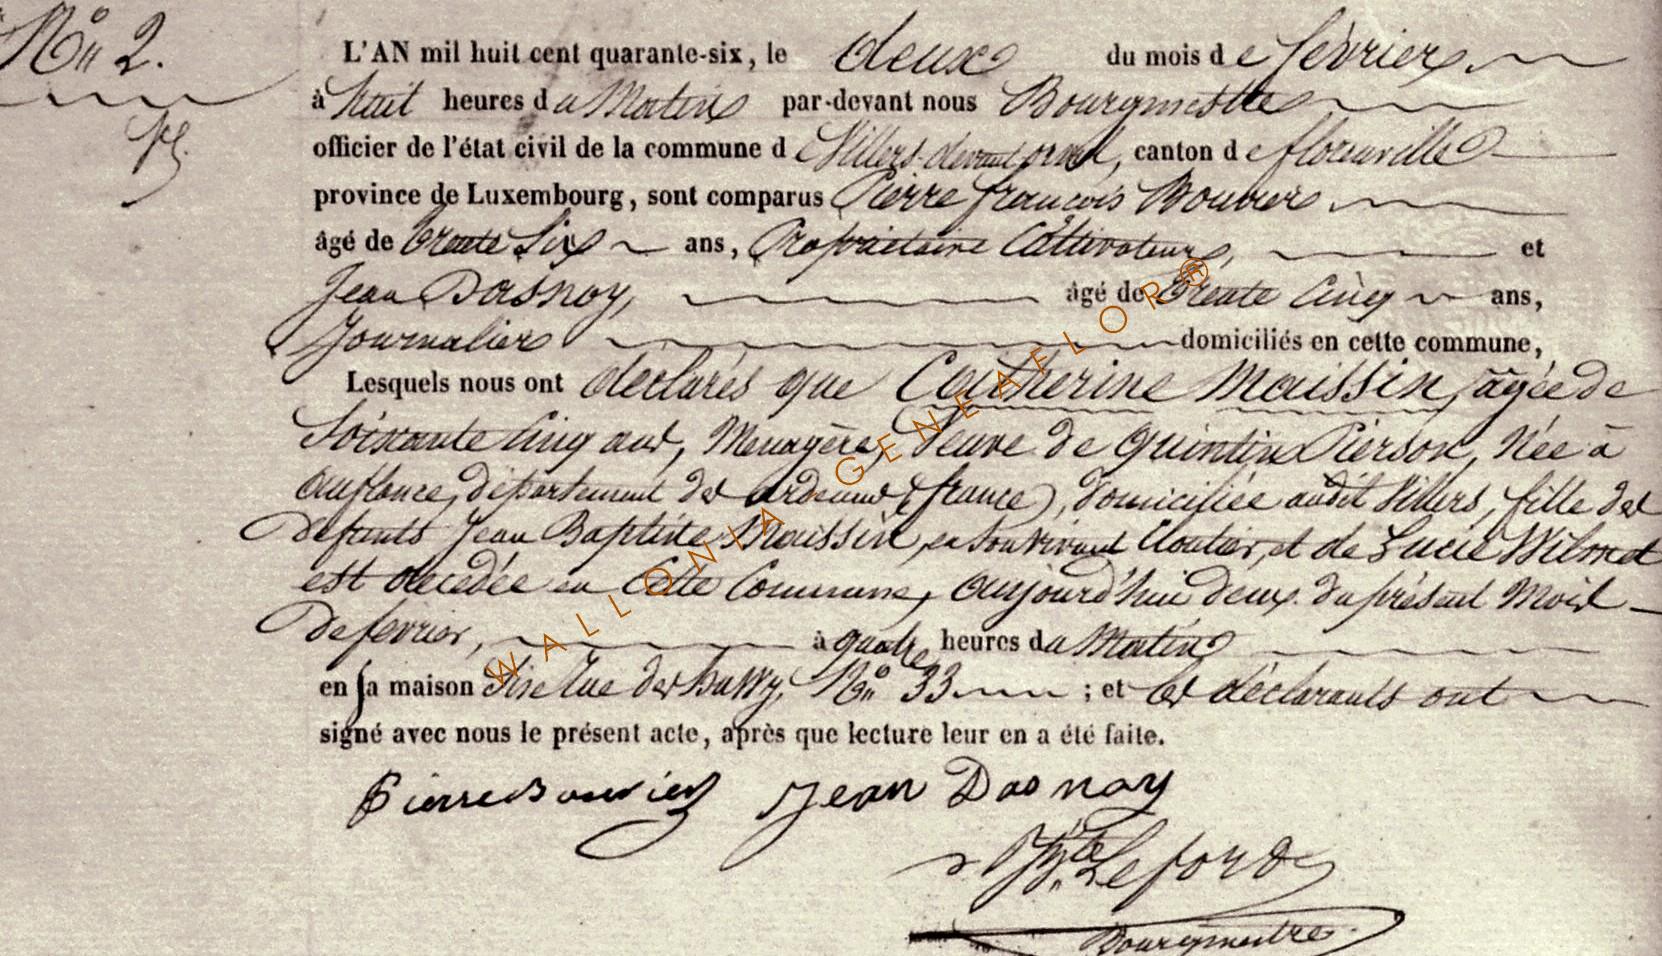 Nº 2.
L'AN mil huit cent quarante-six, le deux du mois de février
à huit heures du Matin par-devant nous Bourgmestre
officier de l'état civil de la commune d Villers-devant-orval, canton de florenville
province de Luxembourg, sont comparus Pierre françois Bouvier
âgé de trente Six ans, Propriétaire Cultivateur, et
Jean Dasnoy, âgé de trente Cinq ans,
Journalier domiciliés en cette commune,
Lesquels nous ont déclarés que Catherine Maissin, âgée de
Soixante Cinq ans, Menagère, Veuve de Quintin Pierson, Née à
auflance, département des ardennes (france), domiciliée audit Villers, fille des
défunts Jean Baptiste Maissin, en son vivant Cloutier, et de Lucie Wilmet
est décédée en Cette Commune, aujourd'hui deux du présent Mois
de fevrier, à quatre heures du Matin
en sa maison Sise rue de Nº 33 ; et les déclarants ont
signé avec nous le présent acte, après que lecture leur en a été faite.
Pierre Bouvier Jean Dasnoy
Bourgmestre.
WALLONIA GENEAFLOR®